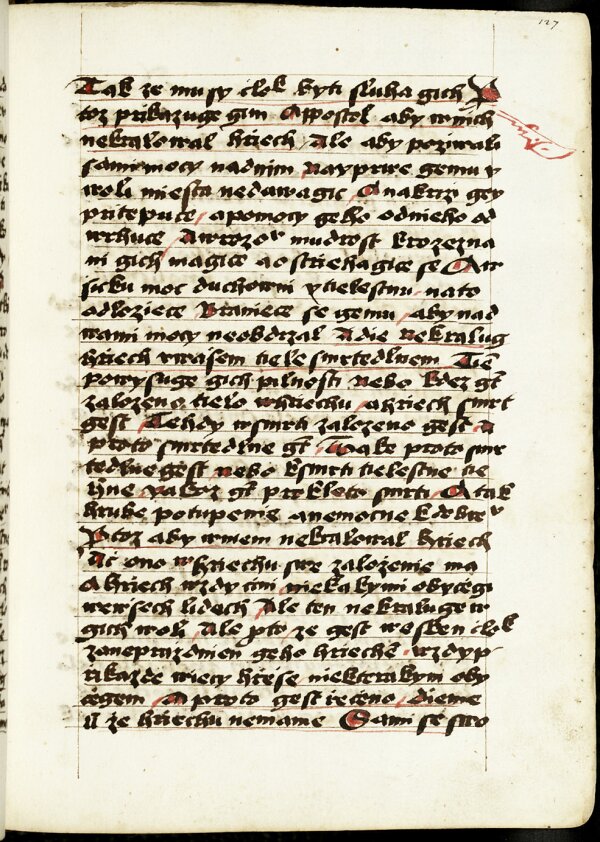 127
Tak ze musy clok byti sluha gich P
toz prikazuge gim Appostol aby wnich
nekralowal hriech Ale aby poziwali
sami mocy nad nim nayprwe gemu w
woli miesta nedawagic A nakrzz gey
pritepuce apomocy geho odnieho od
wrhuce A wrozow mudrost krozezna
ni gich magice aostriehagice se A w
sicku moc duchowni ytielestnu nato
odloziece Braniece se gemu aby nad
wami mocy neobdrzal A die nekralug
hriech wwasem tiele smrtedlnem Tiem
powysuge gich pilnosti nebo kdez gt
zalozeno tielo whriechu ahriech smrt
gest Tehdy wsmrti zalozeno gest a
proto smrtedlne gt Take proto smr
tedlne gest nebo ksmrti tielestne tie
hne yakoz gt prokleto smrti A tak
hrube potupenie anemocne kdobre
Ptoz aby wniem nekralowal hriech
Ac ono whriechu swe zalozenie ma
A hriech wzdy cini niekakymi obycegi
wewsech lidech Ale ten nekraluge w
gich woli Ale pto ze gest wesken clok
zaneprazdnien geho hriechem wzdy p
rikazde wiecy hrese niekterakym oby
cegem A proto gest receno dieme
li ze hriechu nemame Sami se swo